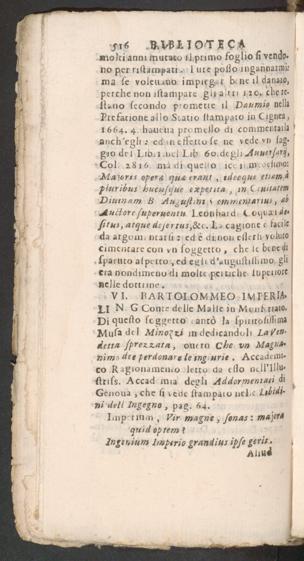 516 BIBLIOTECA
molti anni mutato il primo foglio si vendo-
no per ristampati. Pure posso ingannarmi:
ma se volevano impiegar bene il danaro,
perche non istampare gli altri 120. che re-
stano secondo promette il Daumio nella
Prefazione allo Statio stampato in Cignea,
1664. 4. haueua promesso di commentarla
anch'egli: ed in effetto se ne vede vn sag-
gio del Lib. 1. nel Lib. 60. degli Auuersarj,
Col. 2816. ma di quello
Majoris opera quæ erant, ideoque etiam à
pluribus hucusque expetita, in Ciuitatem
Diuinam B. Augustini commentarius, ab
Auctore superuentu Leonhardi Coquæi de-
situs, atque desertus, &c. La cagione è facile
da argomentarsi: ed è di non essersi voluto
cimentare con vn soggetto, che se bene di
sparuto aspetto, ed egli d'augustissimo, gli
era nondimeno di molte pertiche superiore
nelle dottrine.
VI. BARTOLOMMEO IMPERIA-
LI N. G. Conte delle Masse in Monferrato.
Di questo soggetto cantò la spiritosissima
Musa del Minozzi in dedicandoli La Ven-
detta sprezzata, ouero Che vn Magna-
nimo dee perdonare le ingiurie. Accademi-
co Ragionamento letto da esso nell'Illu-
striss. Accademia degli Addormentati di
Genoua, che si vede stampato nelle Libidi-
ni dell' Ingegno, pag. 64.
Imperium, Vir magne, sonas: majora
quid optem?
Ingenium Imperio grandius ipse geris.
Aliud